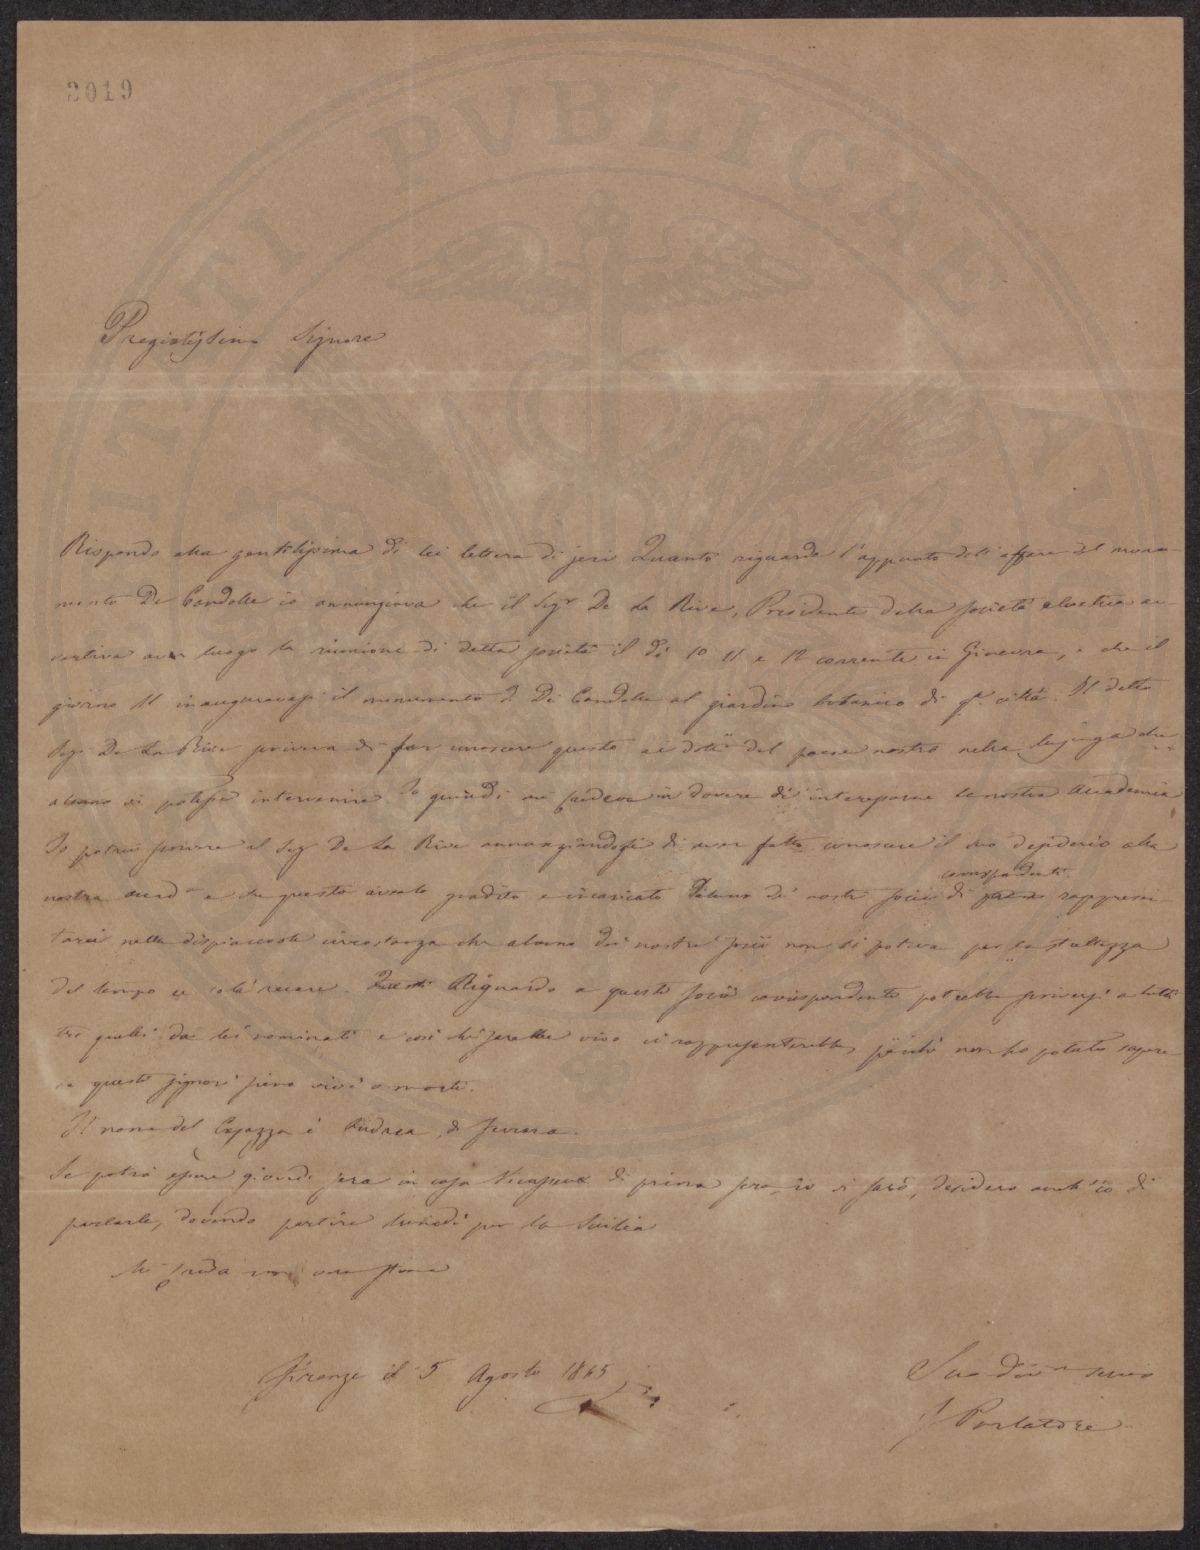 2019
PVBLICAE
Pregiatissimo Signore
Rispondo alla gentilissima di lei lettera di jeri Quanto riguarda l'appunto dell'affare del monu-
mento De Candolle io annunziava che il Sigr De La Rive, Presidente della Società elvetica av-
vertiva aver luogo la riunione di detta società il dì 10 11 e 12 corrente in Ginevra, e che il
giorno 11 inauguravasi il monumento De Candolle al giardino botanico di qa città. Il detto
Sigr De La Rive scriveva di far conoscere questo ai dotti del paese nostro nella lusinga che
alcuno vi potesse intervenire. Io quindi mi credeva in dovere di interessarne la nostra Accademia
Io potrei scrivere al Sigr De La Rive annunziandogli di aver fatto conoscere il suo desiderio alla
nostra Accada e che questo avealo gradito e incaricato taluno de' nostri socii di corrispondenti rappresen-
tarci nella dispiacevole circostanza che alcuno dei nostri socii non si poteva per la strettezza
del tempo colà recare. Riguardo a questo socio corrispondente potrebbe scriversi a tutti
tre quelli da lei nominati e così chi sarebbe vivo ci rappresenterebbe, perchè non ho potuto sapere
se questi signori sieno vivi o morti.
Il nome del è Andrea, di Ferrara.
Se potrà essere giovedì sera in casa Vieusseux di prima sera, io vi sarò, desidero anch'io di
parlarle, dovendo partire lunedì per la Sicilia
Mi creda con vera stima
Firenze il 5 Agosto 1845
Suo servo
F Parlatore